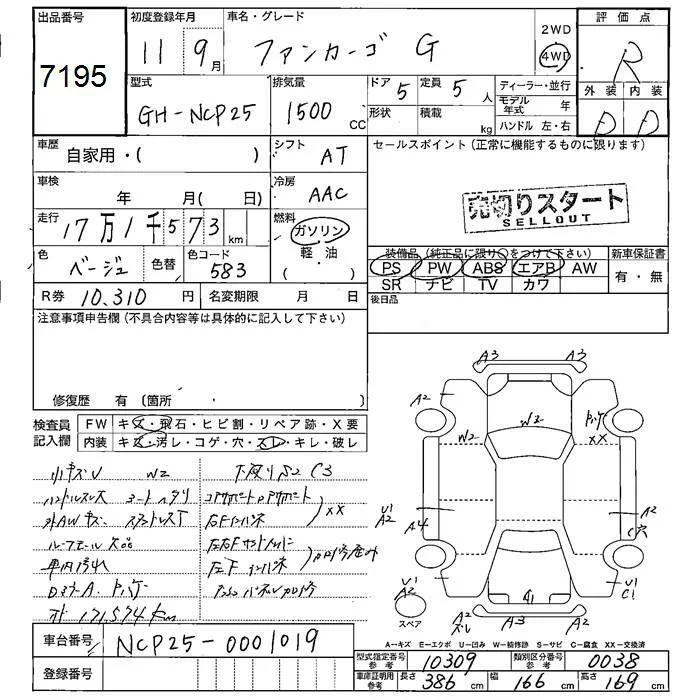 出品番号
7195
初度登録年月
11 9月
車名・グレード
ファンカーゴ G
2WD
4WD
評価点
R
外装 内装
D D
型式
GH-NCP25
排気量
1500cc
ドア 5
定員 5人
形状
積載 kg
ディーラー・並行
モデル年式 年
ハンドル 左・右
車歴
自家用・( )
シフト
AT
車検
年 月( 日)
冷房
AAC
走行
17万1千573km
燃料
ガソリン
軽・油
( )
色
ベージュ
色替
色コード
583
R券 10,310円
名変期限 月 日
セールスポイント(正常に機能するものに限ります)
売切りスタート
SELLOUT
装備品(純正品に限り○をつけて下さい)
PS PW ABS エアB AW
SR ナビ TV カワ
新車保証書
有・無
後日品
注意事項申告欄(不具合内容等は具体的に記入して下さい)
修復歴 有(箇所 )
検査員記入欄
FW キズ・飛石・ヒビ割・リペア跡・X要
内装 キズ・汚レ・コゲ・穴・スレ・キレ・破レ
小キズU W2
ハンドルスレ シートヘタリ
外AWキズ スタッドレスT
車内汚れ
171,574km
下廻りS2 C3
XX
A3 A3
A2
W2
W2
XX
U1
A2
A4
A2
C穴
U1
A2
U1
C1
スペア
A2
スレ
A3
A2
A-キズ E-エクボ U-凹み W-補修跡 S-サビ C-腐食 XX-交換済
車台番号 NCP25-0001019
登録番号
型式指定番号 参考 10309
類別区分番号 参考 0038
車庫証明用 参考
長さ 386cm
幅 166cm
高さ 169cm